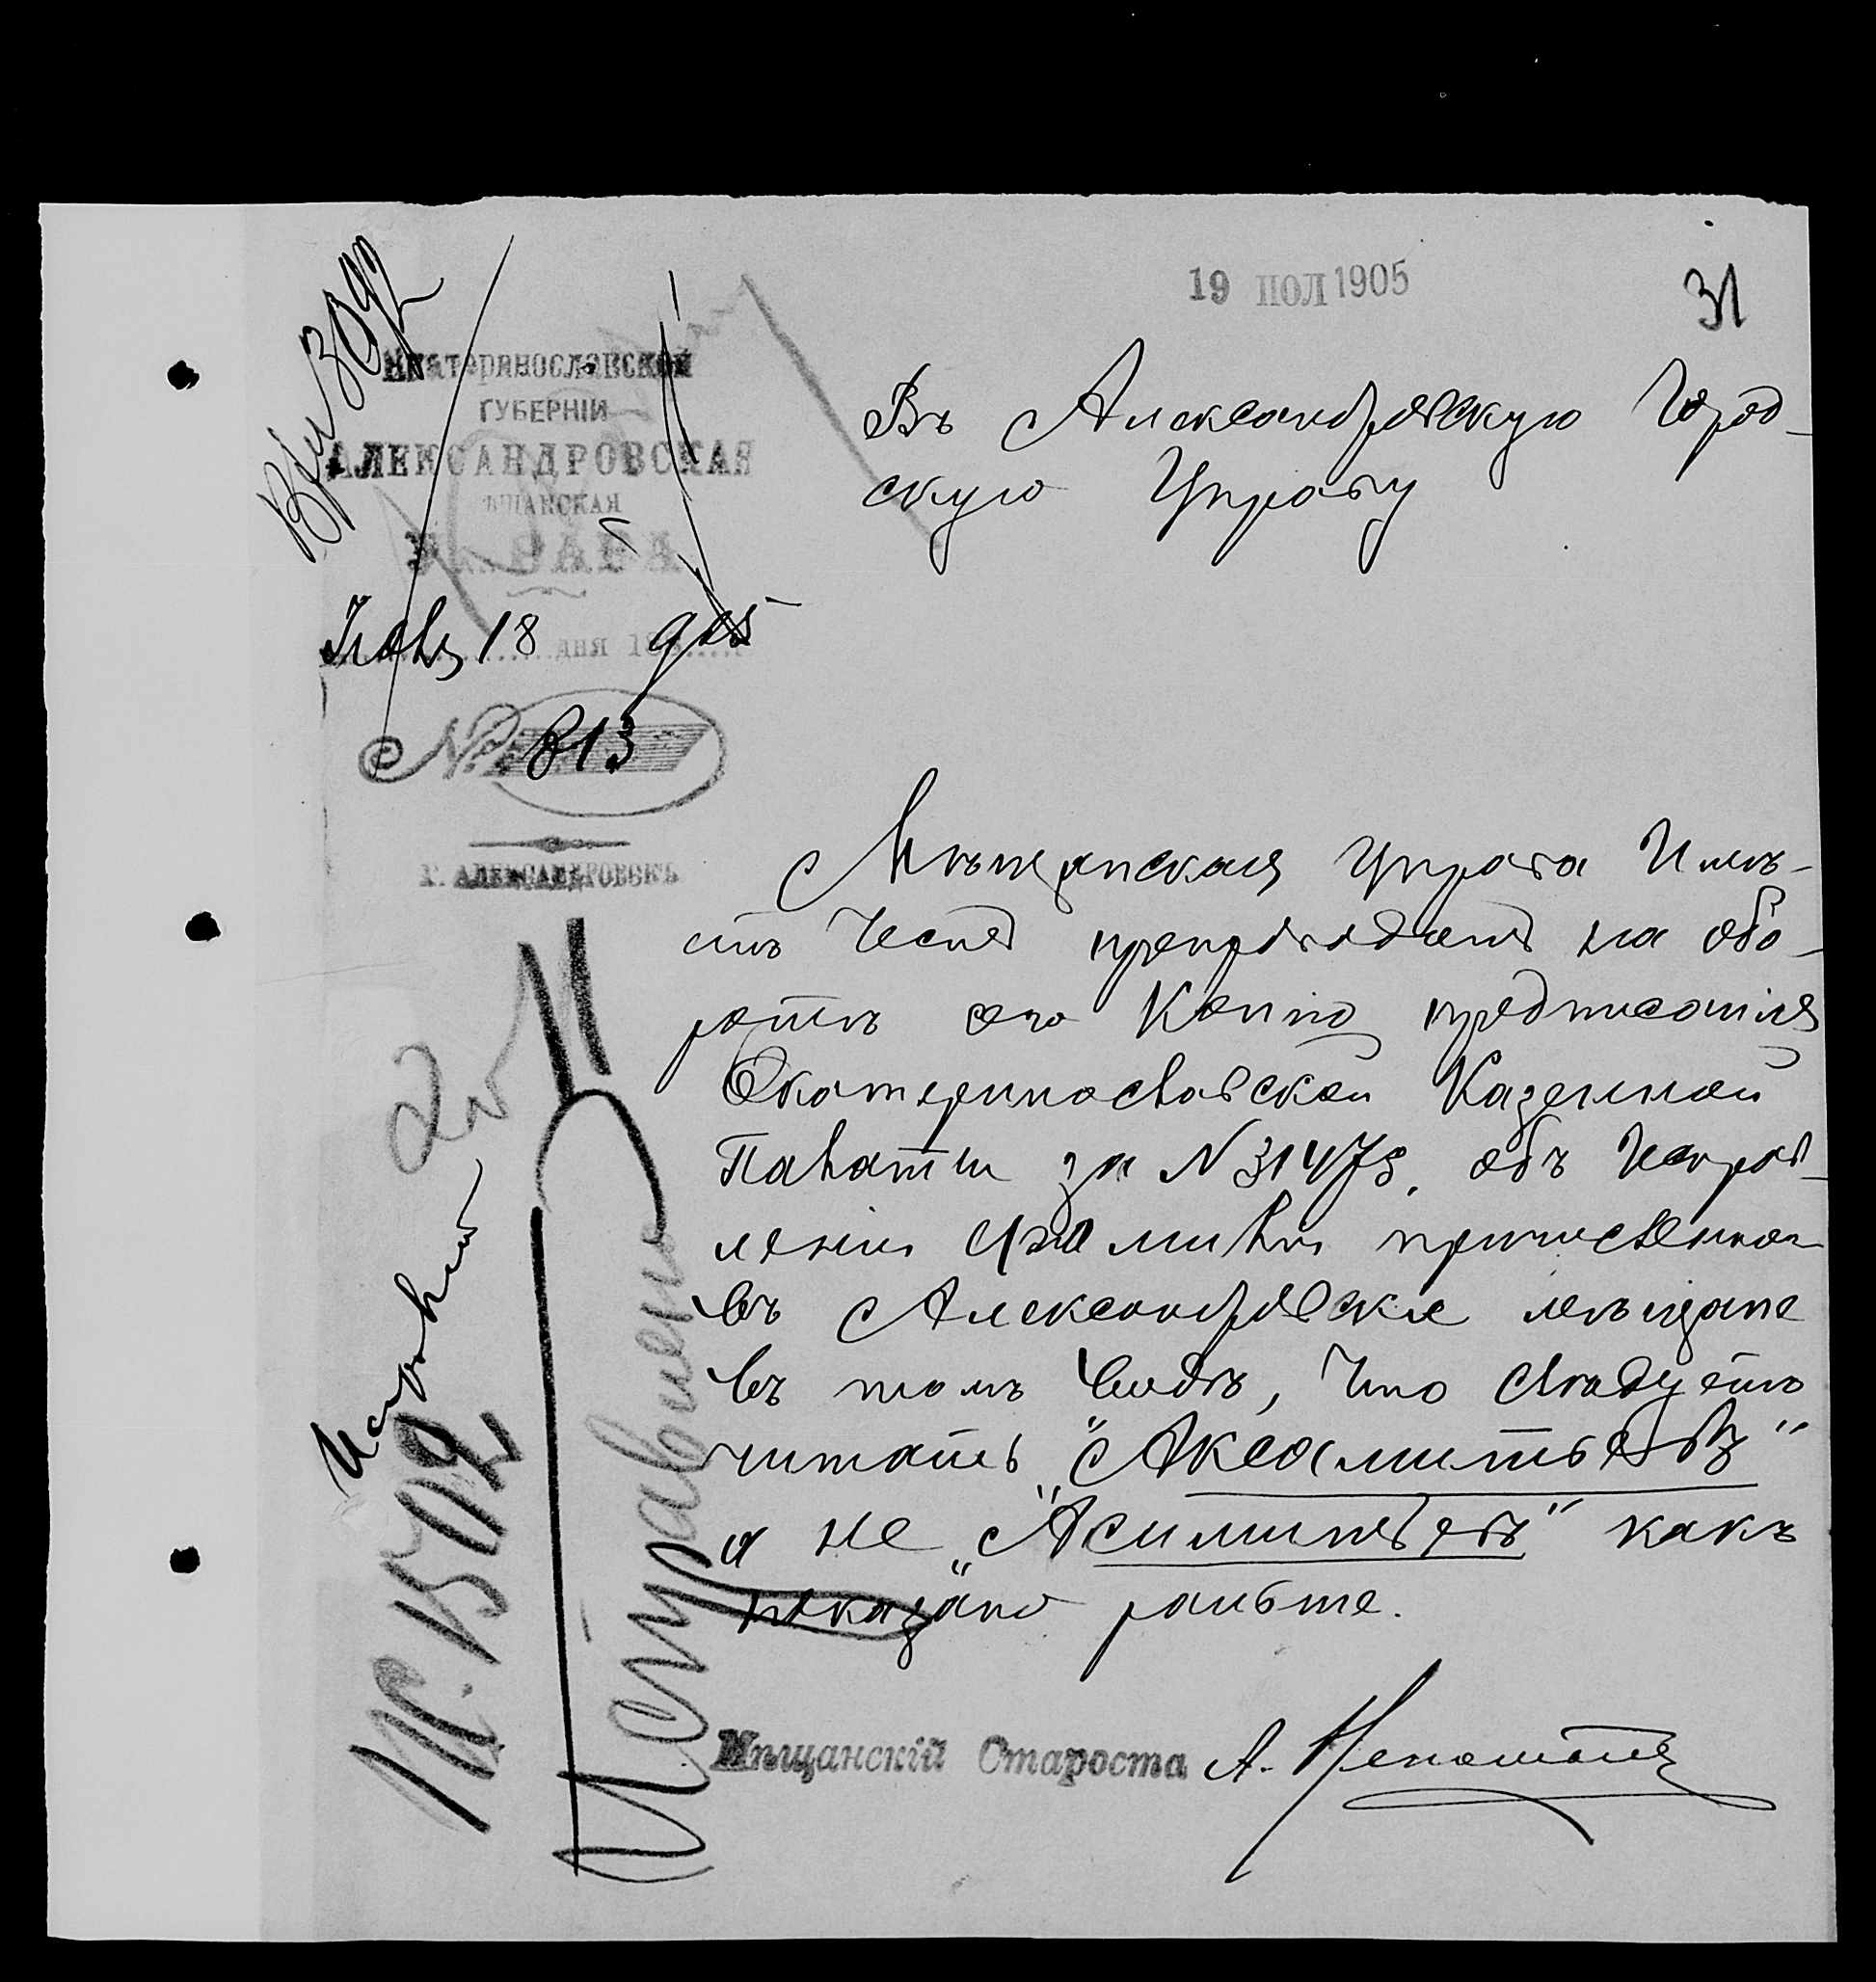 19 ІЮЛ 1905
31
Вхи 3092
Екатеринославской
ГУБЕРНІИ
АЛЕКСАНДРОВСКАЯ
МѢЩАНСКАЯ
УПРАВА
Іюля 18 дня 905
№ 813
Г. АЛЕКСАНДРОВСКЪ
Въ Александровскую Город-
скую Управу
Мѣщанская Управа Имѣ-
етъ Честь препроводить на обо-
ротѣ сего Копію предписанія
Екатеринославской Казенной
Палаты за N 31475, объ Исправ-
леніи фамиліи причисленнаго
въ Александровскіе мѣщане
въ томъ видѣ, что слѣдуетъ
читать „Аксамитьевъ"
а не „Асимитьевъ" какъ
показано раньше.
Мѣщанскій Староста А.
Исправлено